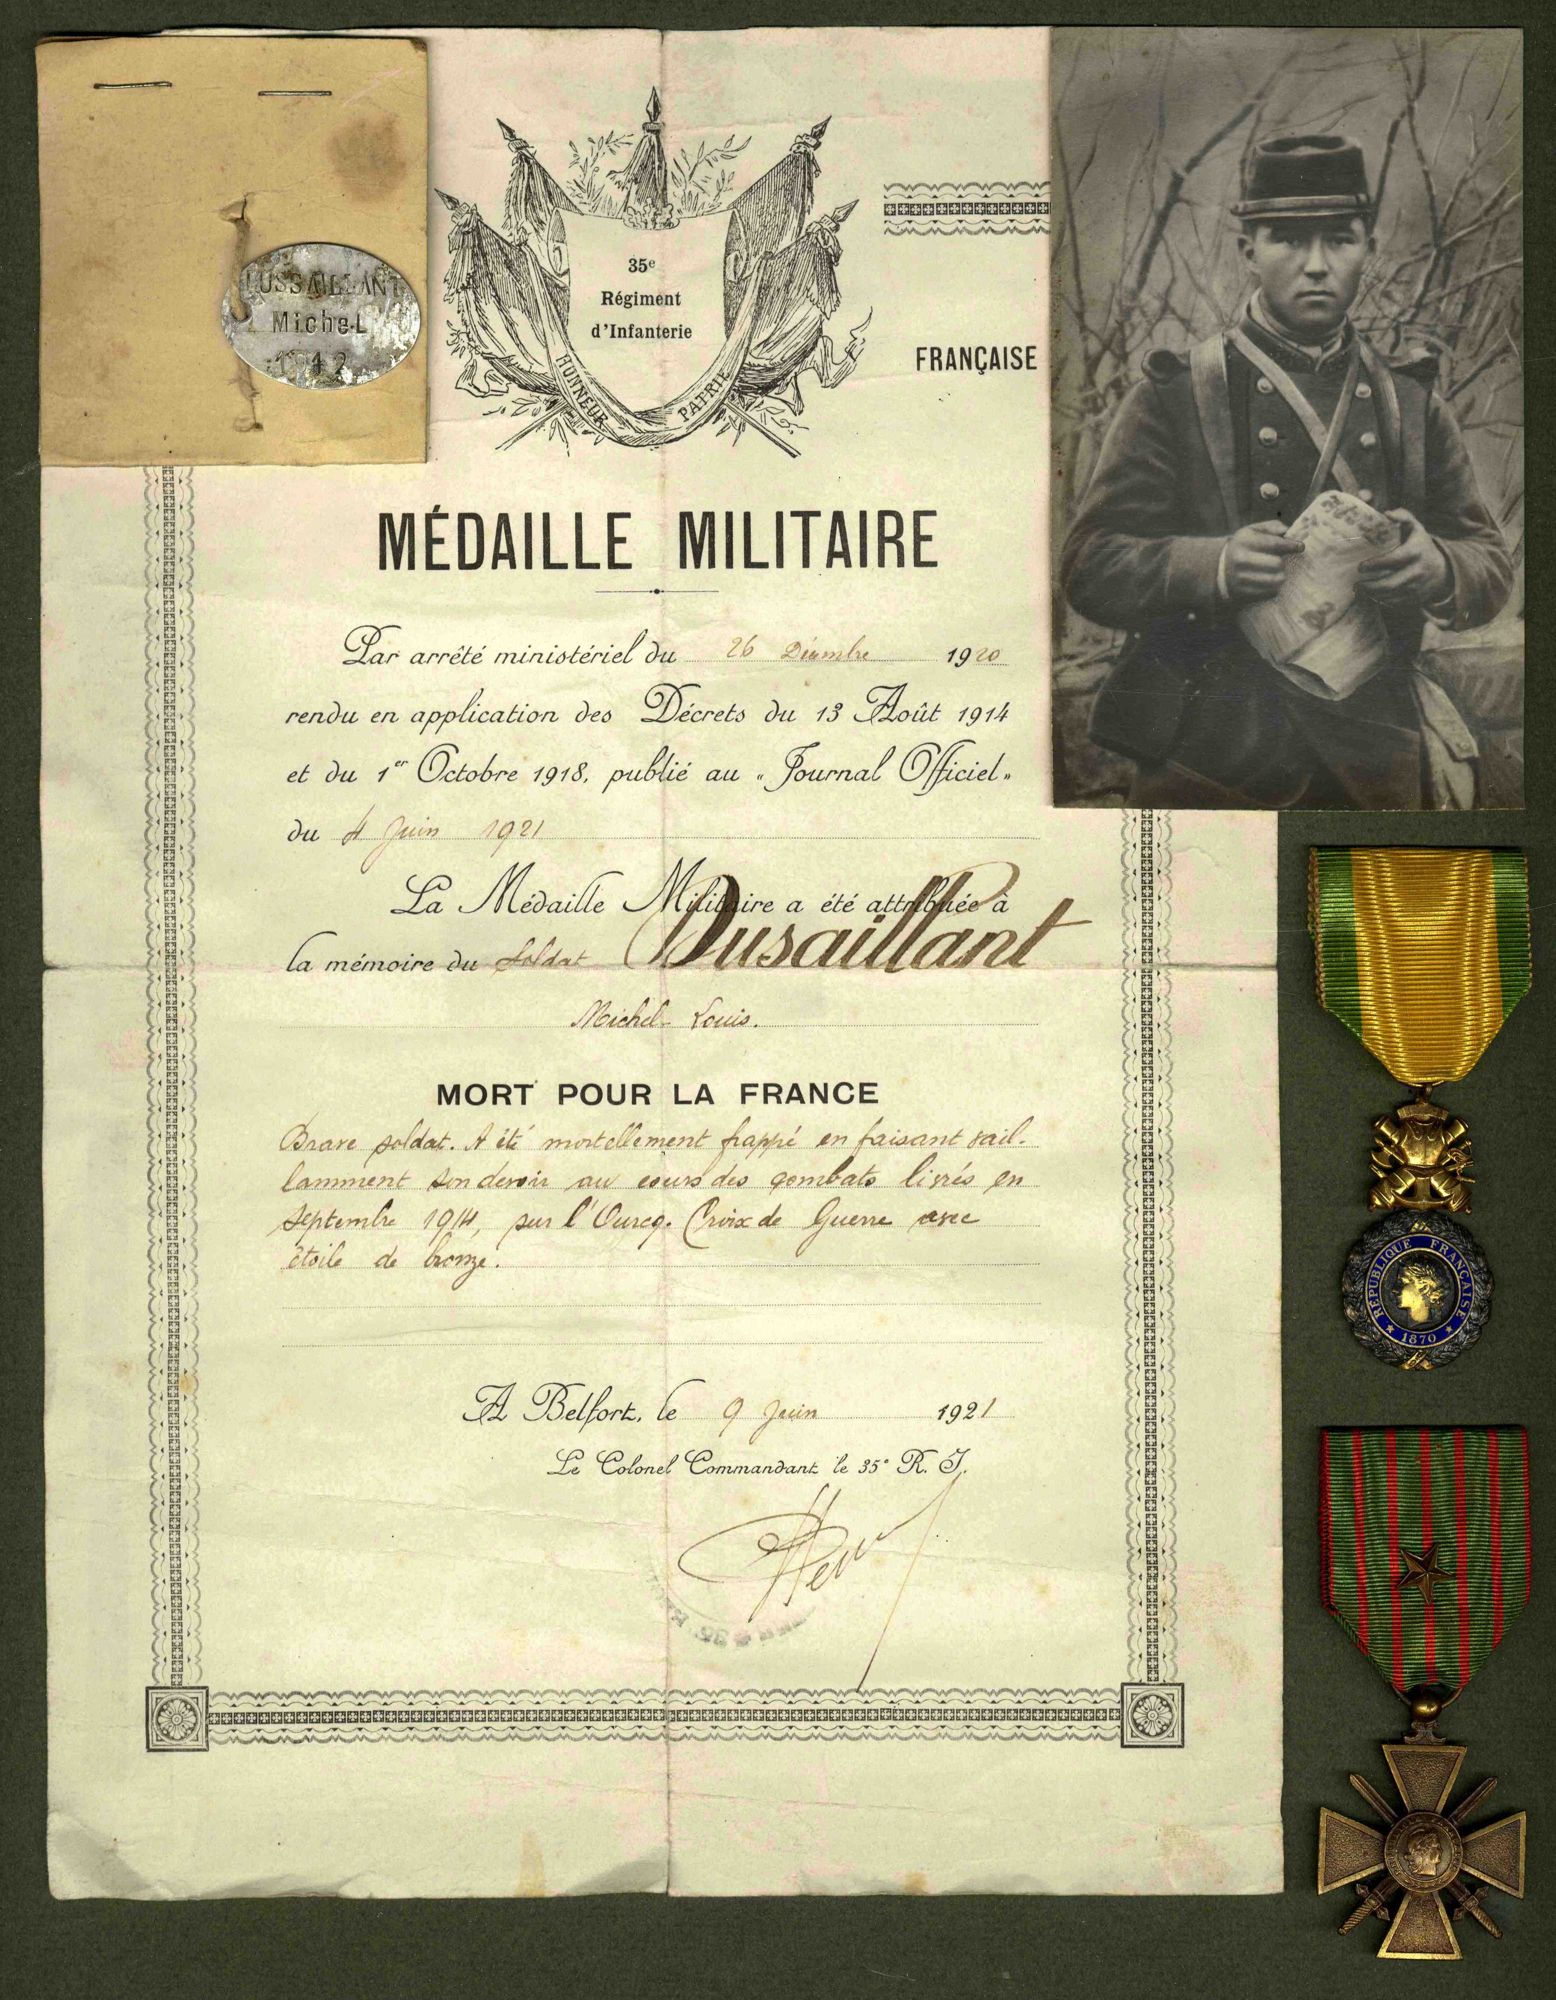 LUSSAILLANT
Michel
1912
35e
Régiment
d'Infanterie
HONNEUR
PATRIE
FRANÇAISE
MÉDAILLE MILITAIRE
Par arrêté ministériel du 26 Décembre 1920
rendu en application des Décrets du 13 Août 1914
et du 1er Octobre 1918, publié au "Journal Officiel"
du 4 Juin 1921
La Médaille Militaire a été attribuée à
la mémoire du Soldat Dusaillant
Michel Louis.
MORT POUR LA FRANCE
Brave soldat. A été mortellement frappé en faisant vail-
lamment son devoir au cours des combats livrés en
septembre 1914, sur l'Ourcq. Croix de Guerre avec
étoile de bronze.
A Belfort, le 9 Juin 1921
Le Colonel Commandant le 35e R. I.
RÉPUBLIQUE FRANÇAISE
* 1870 *